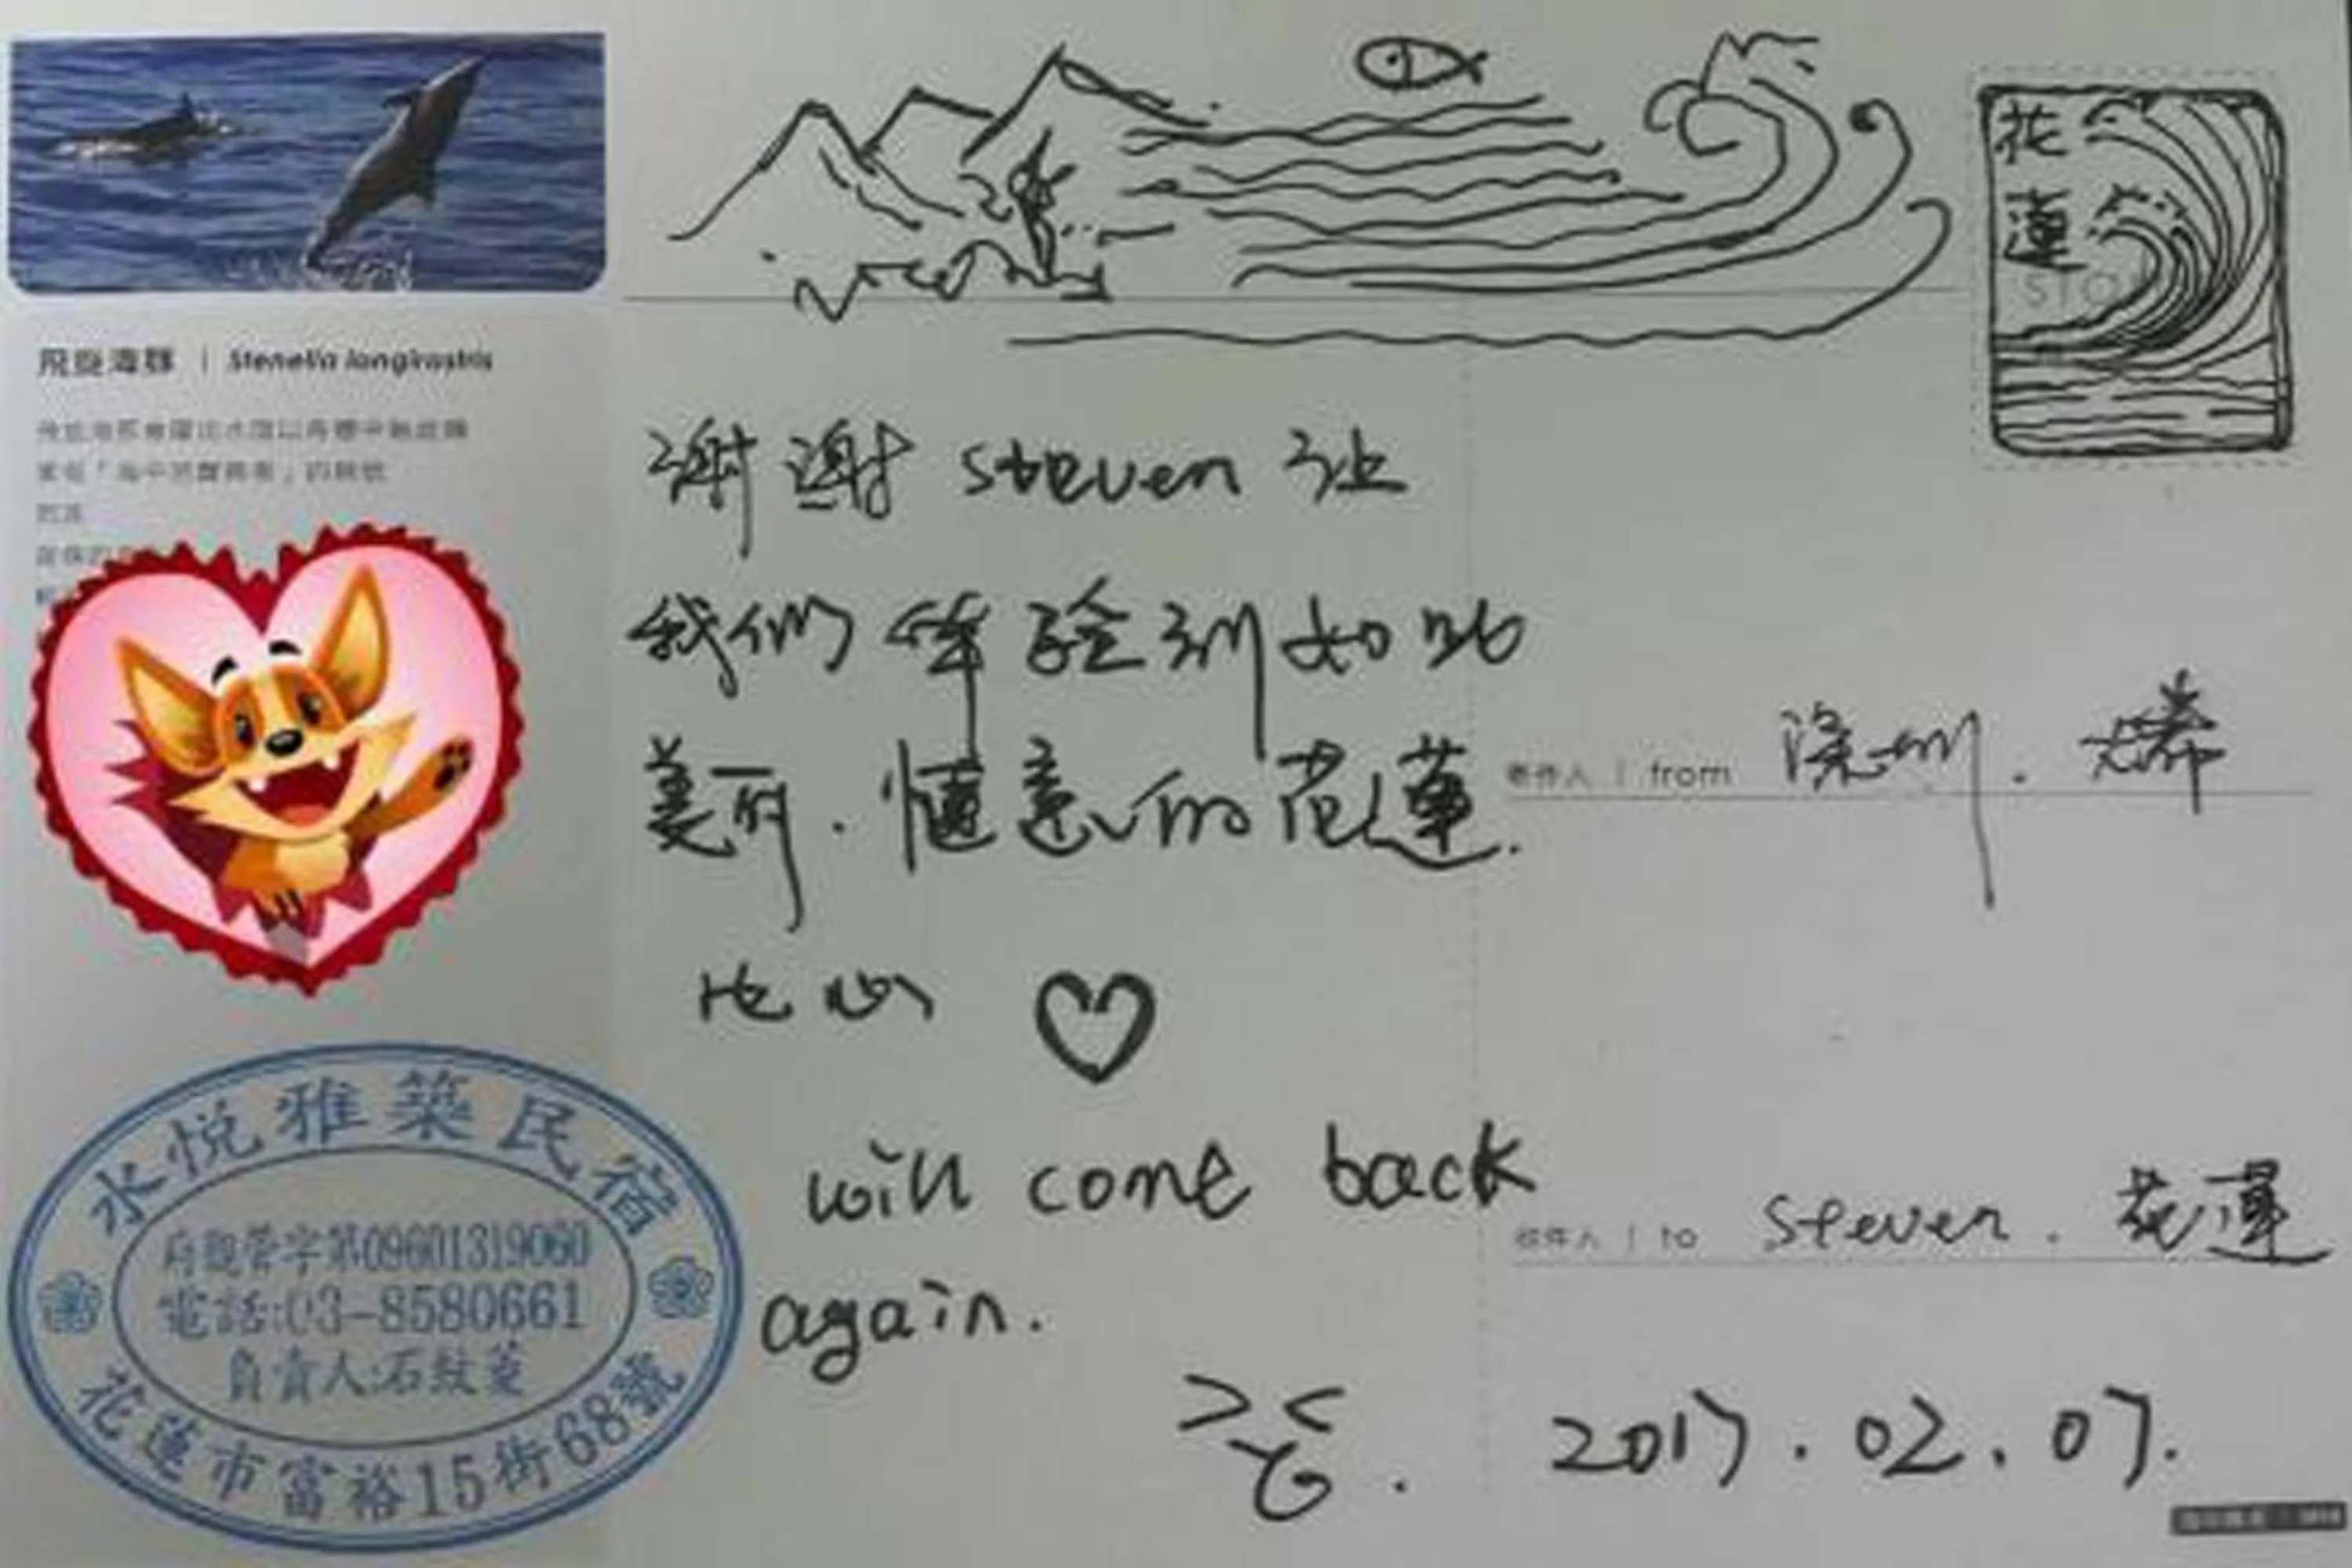 飛旋海豚 | Stenella longirostris
花
蓮
谢谢 Steven 让
我们体验到如此
美丽.惬意的花蓮.
比心
will come back
again.
寄件人 | from 深圳.
收件人 | to Steven. 花蓮
2017.02.07.
水悦雅築民宿
府觀管字第09601319060
電話:03-8580661
負責人:石紋菱
花蓮市富裕15街68號